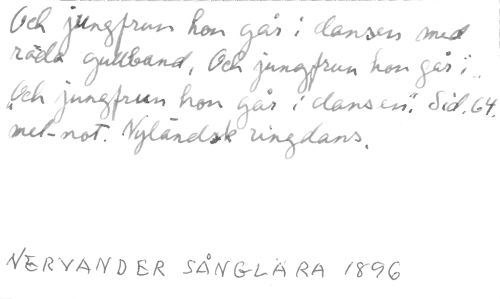 Och jungfrun hon går i dansen med
röda gullband, Och jungfrun hon går i..
"Och jungfrun hon går i dansen". Sid. 64.
mel-not. Nyländsk ringdans.
NERVANDER SÅNGLÄRA 1896